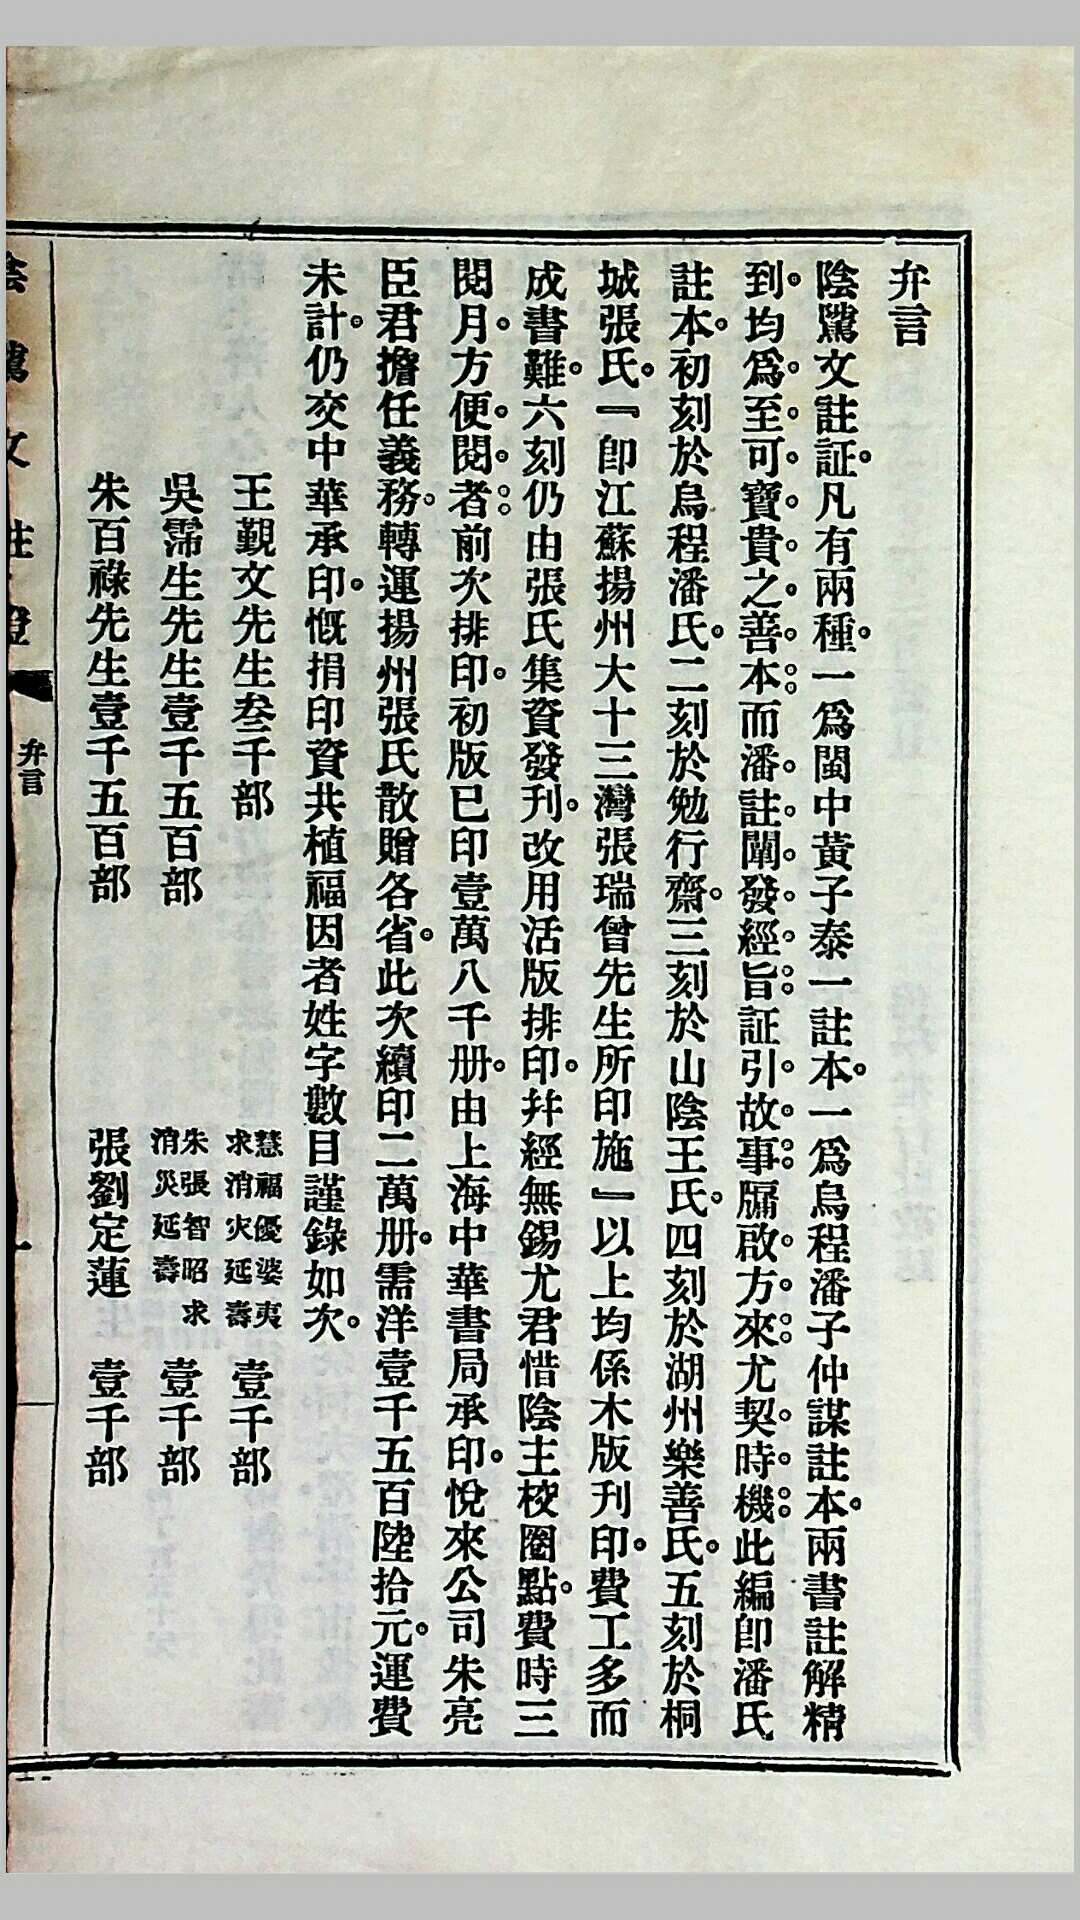 弁言
陰騭文註証。凡有兩種。一爲閩中黃子泰一註本。一爲烏程潘子仲謀註本。兩書註解精
到。均爲至可寶貴之善本。而潘註闡發經旨。証引故事。牖啟方來。尤契時機。此編卽潘氏
註本。初刻於烏程潘氏。二刻於勉行齋。三刻於山陰王氏。四刻於湖州樂善氏。五刻於桐
城張氏。『卽江蘇揚州大十三灣張瑞曾先生所印施』以上均係木版刊印。費工多而
成書難。六刻仍由張氏集資發刊。改用活版排印。幷經無錫尤君惜陰主校圈點。費時三
閱月。方便閱者。前次排印。初版已印壹萬八千册。由上海中華書局承印。悅來公司朱亮
臣君擔任義務。轉運揚州張氏散贈各省。此次續印二萬册。需洋壹千五百陸拾元。運費
未計。仍交中華承印。慨捐印資共植福因者姓字數目謹錄如次。
王觀文先生叁千部
慧福優婆夷
求消灾延壽
壹千部
吳霈生先生壹千五百部
朱張智昭求
消災延壽
壹千部
朱百祿先生壹千五百部
張劉定蓮
壹千部
弁言